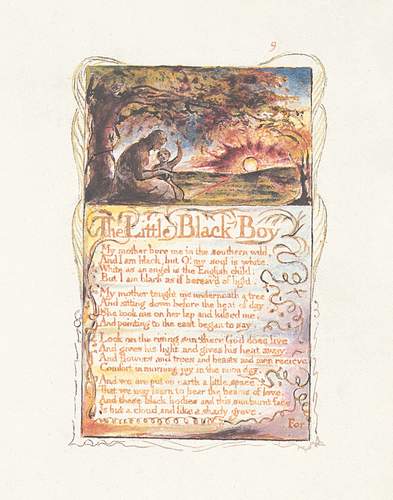 9
The Little Black Boy
My mother bore me in the southern wild,
And I am black, but O! my soul is white,
White as an angel is the English child:
But I am black as if bereav'd of light.
My mother taught me underneath a tree
And sitting down before the heat of day,
She took me on her lap and kissed me,
And pointing to the east began to say.
Look on the rising sun: there God does live
And gives his light, and gives his heat away.
And flowers and trees and beasts and men recieve
Comfort in morning joy in the noon day.
And we are put on earth a little space,
That we may learn to bear the beams of love,
And these black bodies and this sun-burnt face
Is but a cloud, and like a shady grove.
For